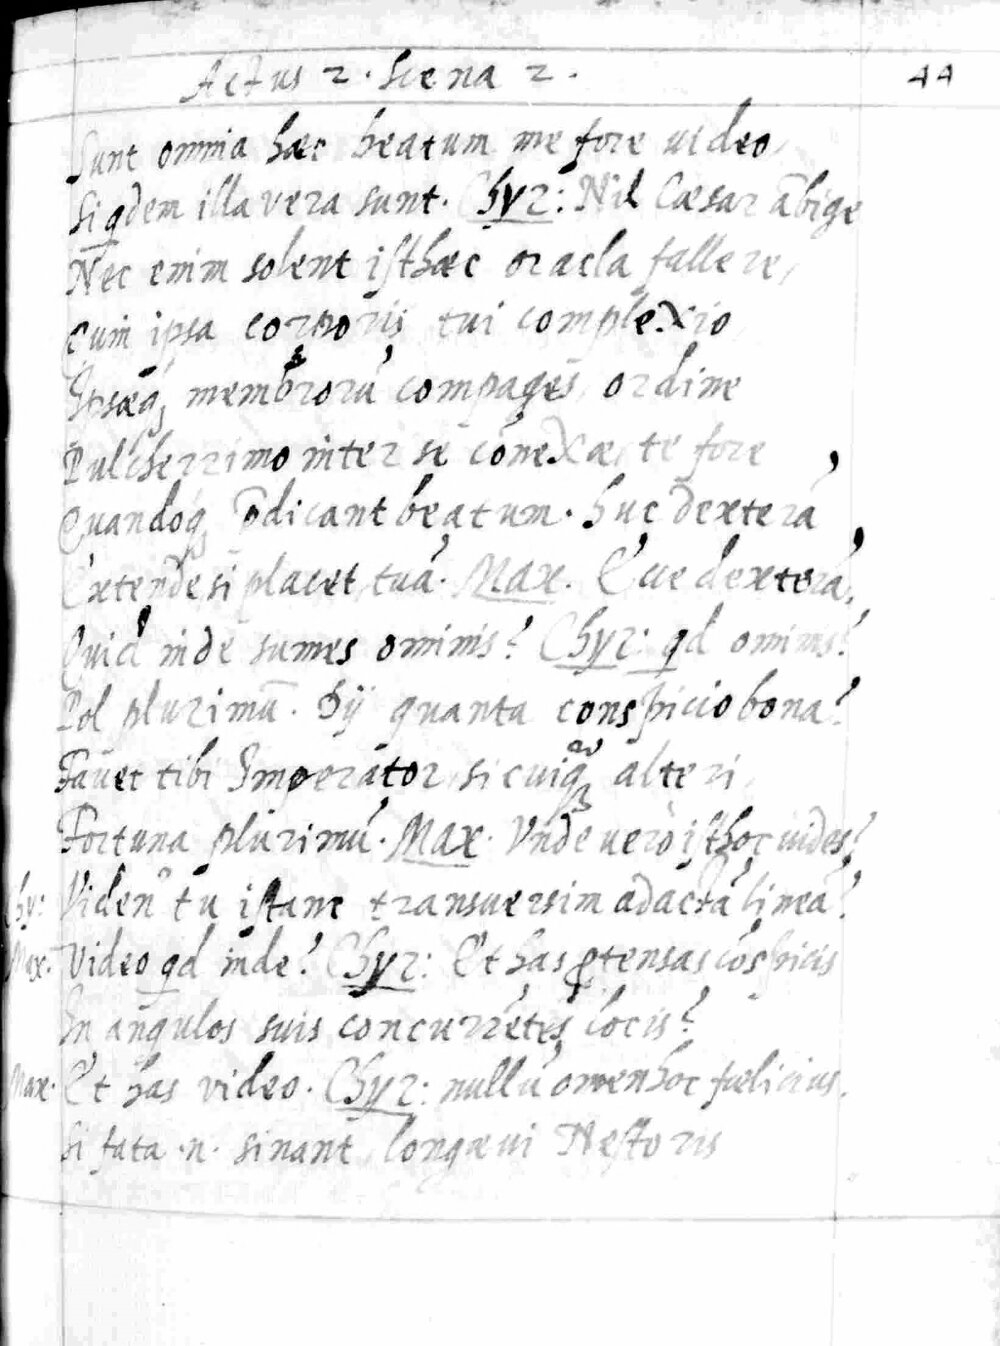 Actus 2. Scena 2. 44
Sunt omnia hæc beatum me fore video,
Siqdem illa vera sunt. Chyr: Nil Cæsar ābige
Nec enim solent isthæc oracla fallere,
Cum ipsa corporis tui complexio,
Ipsæq; membrorū compages, ordine
Pulcherrimo inter se cōnexæ, te fore
Quandoq; p̄dicant beatum. huc dexterā
Extende si placet, tuā. Max. Ecce dexterā,
Quid inde sumes ominis? Chyr: qd ominis?
Pol plurimū. Dij quanta conspicio bona?
Favet tibi Imperator, si cuiq; alteri,
Fortuna plurimū. Max. Unde vero isthoc vides?
Chy: Viden' tu istanc transversim adactā lineā?
Max. Video qd inde? Chyr: Et has ꝓtensas cōspicis
In angulos suis concurrētes locis?
Max. Et has video. Chyr: nullū omen hoc fœlicius.
Si fata .n. sinant, longævi Nestoris